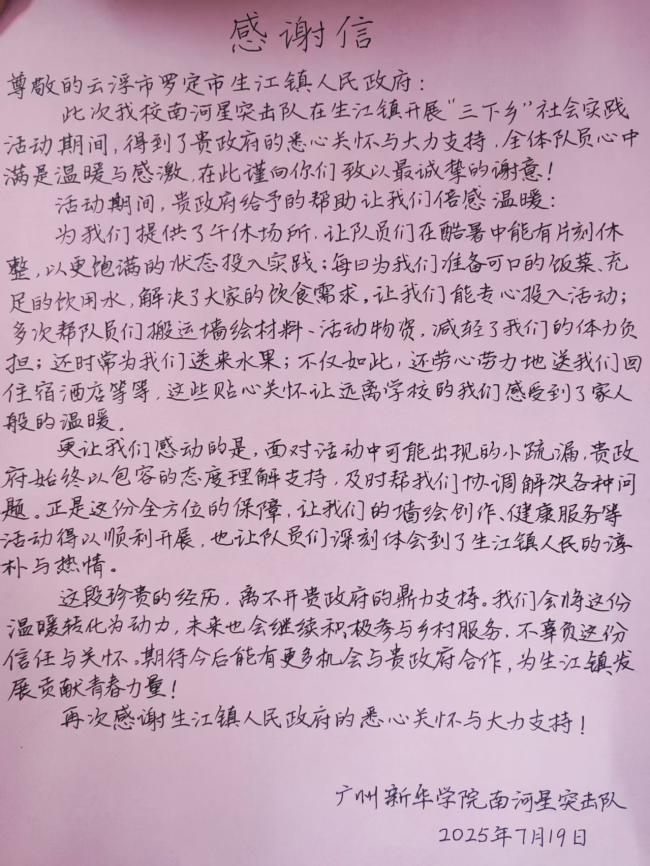 感谢信
尊敬的云浮市罗定市生江镇人民政府：
此次我校南河星突击队在生江镇开展“三下乡”社会实践
活动期间，得到了贵政府的悉心关怀与大力支持，全体队员心中
满是温暖与感激，在此谨向你们致以最诚挚的谢意！
活动期间，贵政府给予的帮助让我们倍感温暖：
为我们提供了午休场所，让队员们在酷暑中能有片刻休
整，以更饱满的状态投入实践；每日为我们准备可口的饭菜、充
足的饮用水，解决了大家的饮食需求，让我们能专心投入活动；
多次帮队员们搬运墙绘材料、活动物资，减轻了我们的体力负
担；还时常为我们送来水果；不仅如此，还劳心劳力地送我们回
住宿酒店等等，这些贴心关怀让远离学校的我们感受到了家人
般的温暖。
更让我们感动的是，面对活动中可能出现的小疏漏，贵政
府始终以包容的态度理解支持，及时帮我们协调解决各种问
题。正是这份全方位的保障，让我们的墙绘创作、健康服务等
活动得以顺利开展，也让队员们深刻体会到了生江镇人民的淳
朴与热情。
这段珍贵的经历，离不开贵政府的鼎力支持。我们会将这份
温暖转化为动力，未来也会继续积极参与乡村服务，不辜负这份
信任与关怀。期待今后能有更多机会与贵政府合作，为生江镇发
展贡献青春力量！
再次感谢生江镇人民政府的悉心关怀与大力支持！
广州新华学院南河星突击队
2025年7月19日